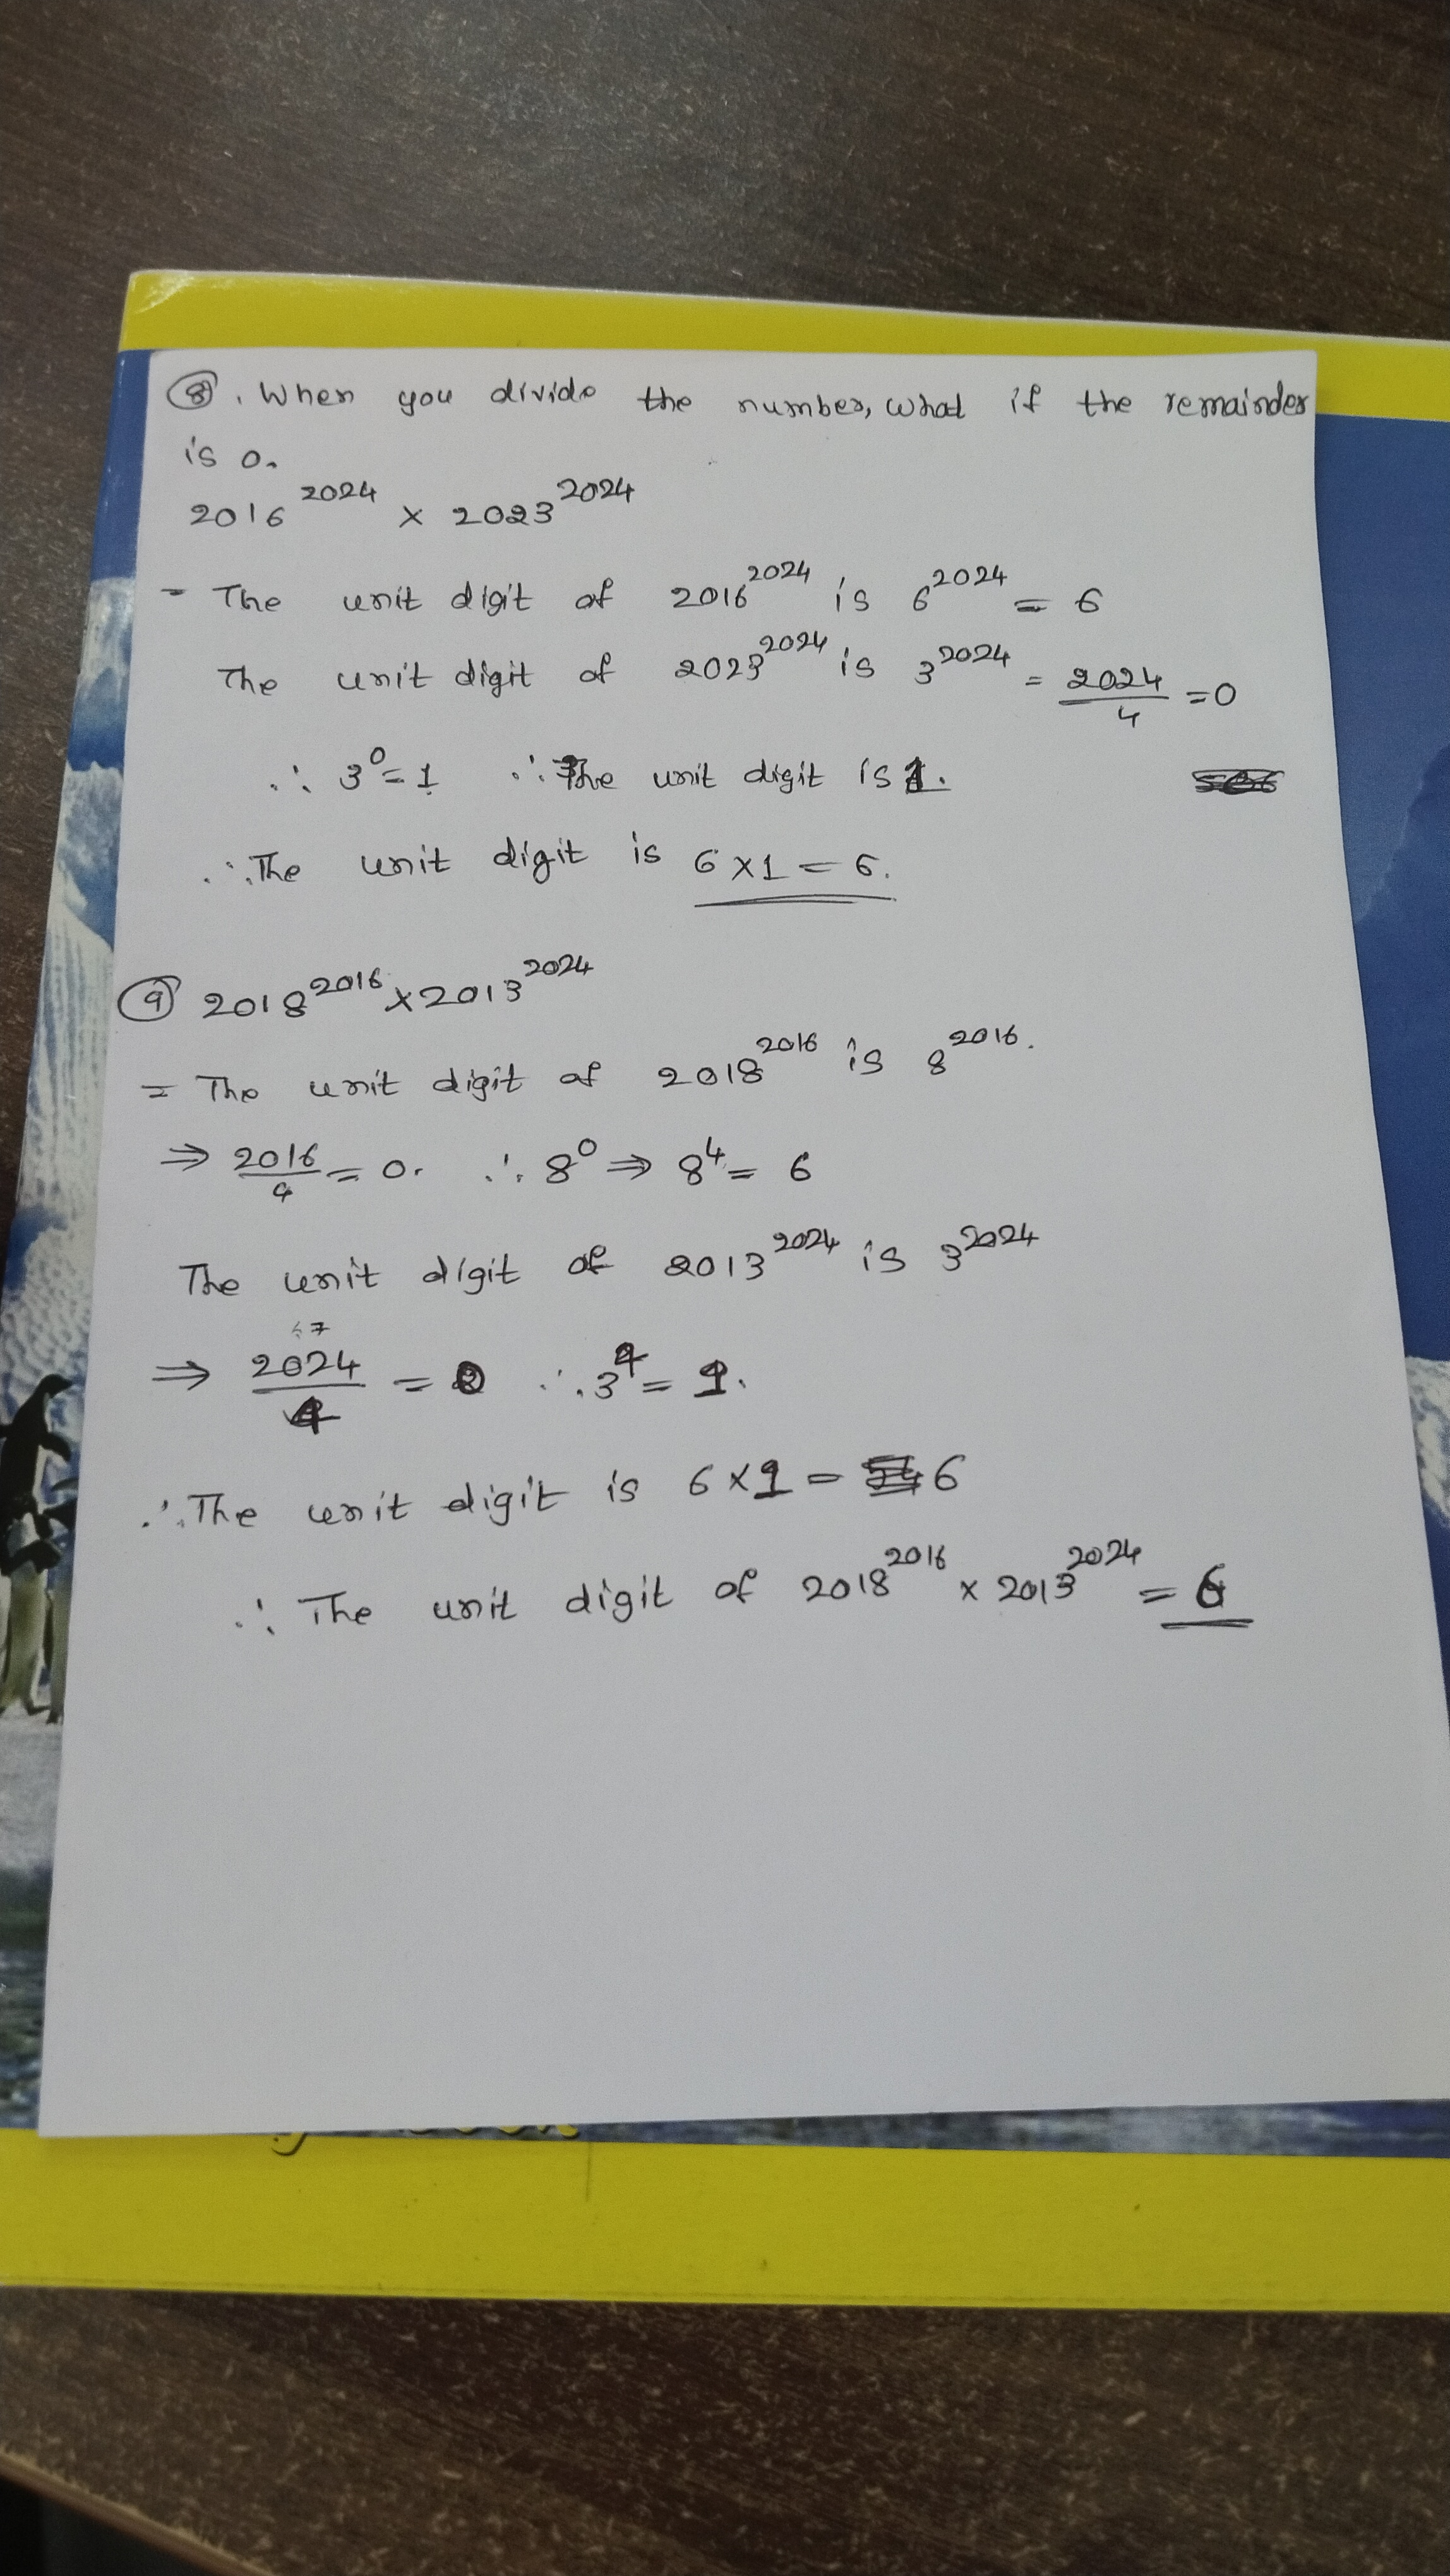 ⑧. When you divide the number, what if the remainder
is 0.
2016^2024 × 2023^2024
= The unit digit of 2016^2024 is 6^2024 = 6
The unit digit of 2023^2024 is 3^2024 = 2024/4 = 0
∴ 3^0 = 1 ∴ The unit digit is 1.
∴ The unit digit is 6×1 = 6.
⑨ 2018^2016 × 2013^2024
= The unit digit of 2018^2016 is 8^2016.
⇒ 2016/4 = 0. ∴ 8^0 ⇒ 8^4 = 6
The unit digit of 2013^2024 is 3^2024
⇒ 2024/4 = 0 ∴ 3^4 = 1.
∴ The unit digit is 6×1 = 6
∴ The unit digit of 2018^2016 × 2013^2024 = 6